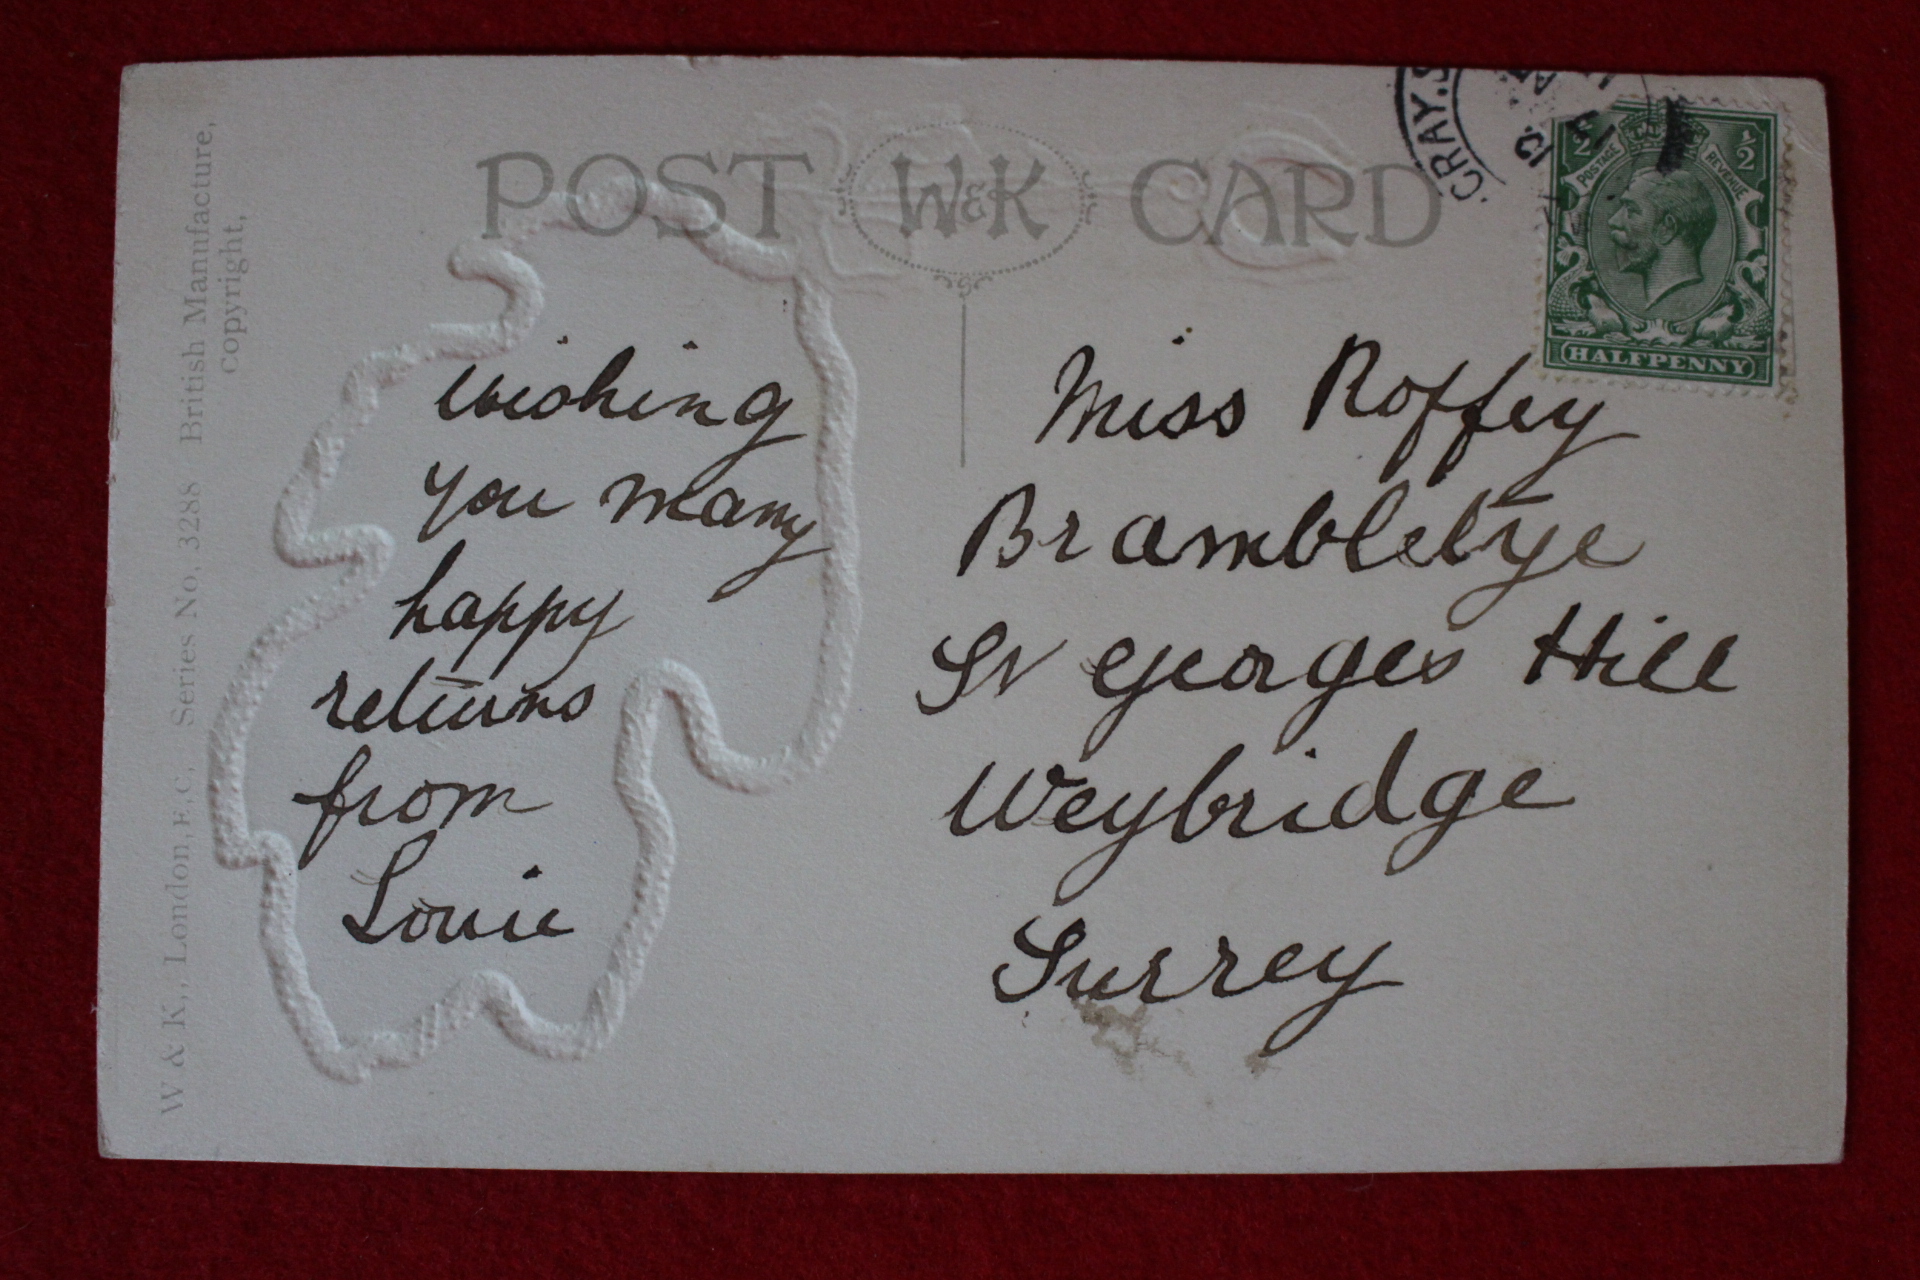 POST W&K CARD
CRAY.S
½ ½
POSTAGE REVENUE
HALFPENNY
W & K., London, E.C. Series No. 3288 British Manufacture,
Copyright,
Wishing
you many
happy
returns
from
Louie
Miss Roffey
Brambletye
St Georges Hill
Weybridge
Surrey